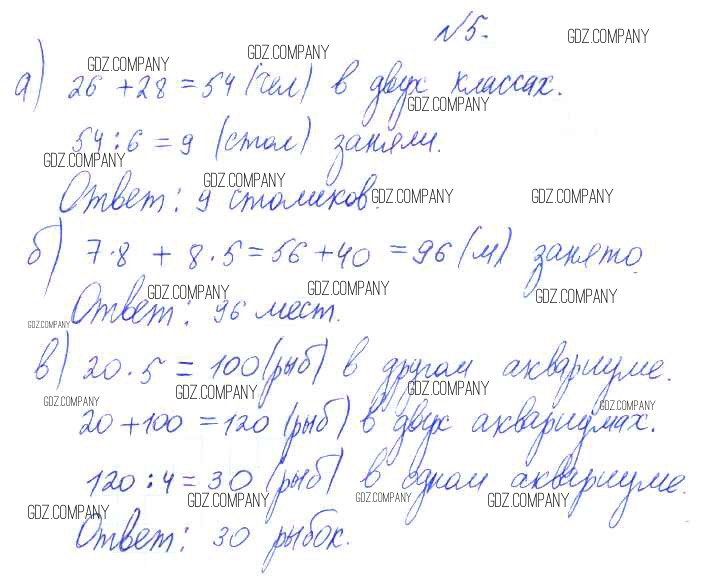 №5.
GDZ.COMPANY GDZ.COMPANY GDZ.COMPANY
а) 26 + 28 = 54 (чел) в двух классах.
GDZ.COMPANY
54 : 6 = 9 (стол) заняли.
GDZ.COMPANY GDZ.COMPANY GDZ.COMPANY GDZ.COMPANY
Ответ: 9 столиков.
б) 7·8 + 8·5 = 56 + 40 = 96 (м) занято.
GDZ.COMPANY GDZ.COMPANY GDZ.COMPANY
Ответ: 96 мест.
GDZ.COMPANY
в) 20·5 = 100 (рыб) в другом аквариуме.
GDZ.COMPANY GDZ.COMPANY GDZ.COMPANY GDZ.COMPANY
20 + 100 = 120 (рыб) в двух аквариумах.
120 : 4 = 30 (рыб) в одном аквариуме.
GDZ.COMPANY GDZ.COMPANY GDZ.COMPANY GDZ.COMPANY
Ответ: 30 рыбок.